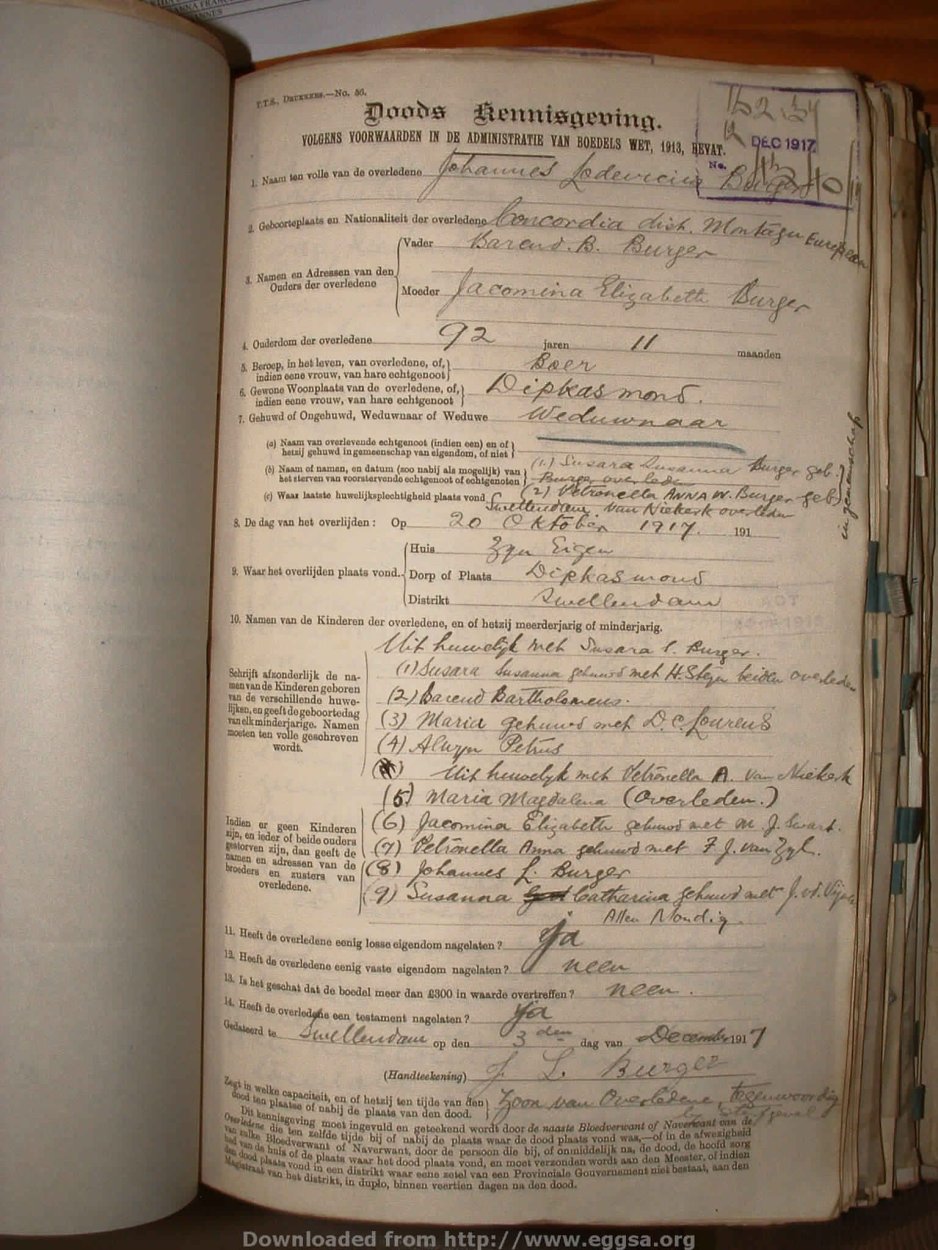 T.T.S., DRUKKERS.—No. 56.
Doods Kennisgeving.
VOLGENS VOORWAARDEN IN DE ADMINISTRATIE VAN BOEDELS WET, 1913, BEVAT.
DEC 1917
No.
1. Naam ten volle van de overledene Johannes Lodevicius Burger
2. Geboorteplaats en Nationaliteit der overledene Concordia dist. Montagu European
3. Namen en Adressen van den Ouders der overledene
Vader Barend. B. Burger
Moeder Jacomina Elizabeth Burger
4. Ouderdom der overledene 92 jaren 11 maanden
5. Beroep, in het leven, van overledene, of, indien eene vrouw, van hare echtgenoot Boer
6. Gewone Woonplaats van de overledene, of, indien eene vrouw, van hare echtgenoot Dipkasmond.
7. Gehuwd of Ongehuwd, Weduwnaar of Weduwe Weduwnaar
(a) Naam van overlevende echtgenoot (indien een) en of hetzij gehuwd in gemeenschap van eigendom, of niet
(b) Naam of namen, en datum (zoo nabij als mogelijk) van het sterven van voorstervende echtgenoot of echtgenoten
(1.) Susara Susanna Burger geb.
Burger overleden
(c) Waar laatste huwelijksplechtigheid plaats vond
(2) Petronella ANNA W. Burger geb
Swellendam. van Niekerk overleden
in gemeenschap
8. De dag van het overlijden: Op 20 Oktober 1917. 191
9. Waar het overlijden plaats vond.
Huis Zyn Eigen
Dorp of Plaats Dipkasmond
Distrikt Swellendam
10. Namen van de Kinderen der overledene, en of hetzij meerderjarig of minderjarig.
Uit huwelijk met Susara S. Burger.
Schrijft afzonderlijk de namen van de Kinderen geboren van de verschillende huwelijken, en geeft de geboortedag van elk minderjarige. Namen moeten ten volle geschreven wordt.
(1) Susara Susanna gehuwd met H. Steyn beiden overleden
(2) Barend Bartholomeus.
(3) Maria gehuwd met D. C. Lourens
(4) Alwyn Petrus
Uit huwelyk met Petronella A. van Niekerk
(5) Maria Magdalena (Overleden.)
Indien er geen Kinderen zijn, en ieder of beide ouders gestorven zijn, dan geeft de namen en adressen van de broeders en zusters van overledene.
(6) Jacomina Elizabeth gehuwd met M. J. Swart.
(7) Petronella Anna gehuwd met F. J. van Zyl.
(8) Johannes L. Burger
(9) Susanna Catharina gehuwd met J. v.d. Vijver
Allen Mondig.
11. Heeft de overledene eenig losse eigendom nagelaten? ja
12. Heeft de overledene eenig vaste eigendom nagelaten? neen
13. Is het geschat dat de boedel meer dan £300 in waarde overtreffen? neen.
14. Heeft de overledene een testament nagelaten? ja
Gedateerd te Swellendam op den 3den dag van December 1917
(Handteekening) J. L. Burger
Zegt in welke capaciteit, en of hetzij ten tijde van den dood ten plaatse of nabij de plaats van den dood. Zoon van Overledene, tegenwoordig
by sterfgeval
Dit kennisgeving moet ingevuld en geteekend wordt door de naaste Bloedverwant of Naverwant van de
Overledene die ten zelfde tijde bij of nabij de plaats waar de dood plaats vond was,—of in de afwezigheid
van zulke Bloedverwant of Naverwant, door de persoon die bij, of onmiddelijk na, de dood, de hoofd zorg
had van de huis of de plaats waar het dood plaats vond, en moet verzonden wordt aan den Meester, of indien
den dood plaats vond in een distrikt waar eene zetel van een Provinciale Gouvernement niet bestaat, aan den
Magistraat van het distrikt, in duplo, binnen veertien dagen na den dood.
Downloaded from http://www.eggsa.org